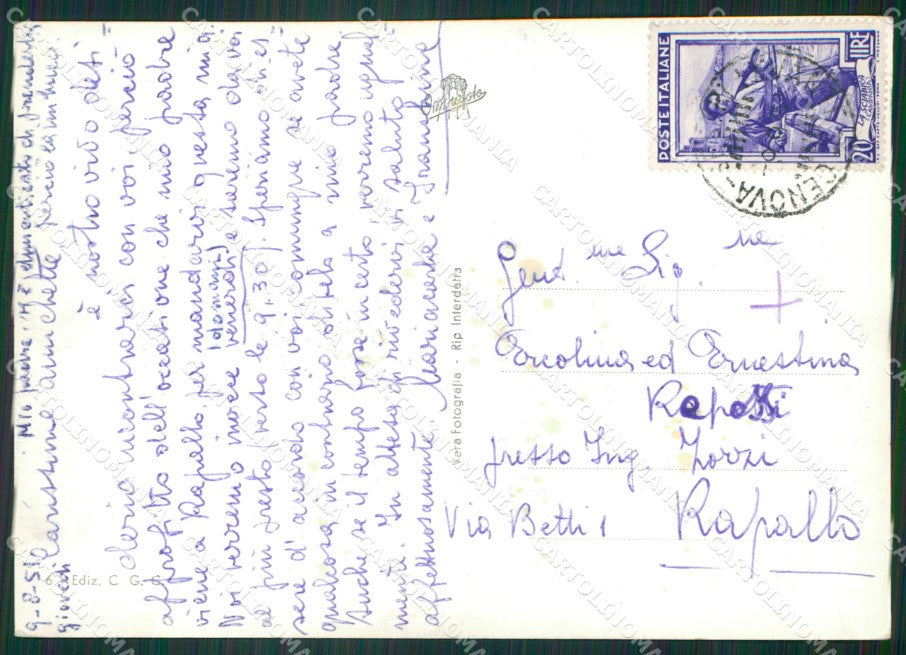 9-8-51
giovedì
Mio padre mi ha dimenticato di
Carissime amichette
è nostro vivo desi-
derio incontrarci con voi, perciò
approfitto dell'occasione che mio padre
viene a Rapallo, per mandarvi questa mia
(domani)
Noi verremo invece venerdì e saremo da voi
al più presto verso le 9.30. Speriamo di es-
sere d'accordo con voi, comunque se avete
qualcosa in contrario ditelo a mio padre
Anche se il tempo fosse incerto, verremo ugual-
mente. In attesa di rivedervi vi saluto
affettuosamente. Mariacarla e Gianfranca
6 Ediz. C. G. C.
Vera Fotografia - Rip Interdetta
POSTE ITALIANE
20 LIRE
GENOVA
Gent.me Sig.ne
Ercolina ed Ernestina
Repossi
presso Ing Zorzi
Via Betti 1 Rapallo
CARTOLINOMANIA